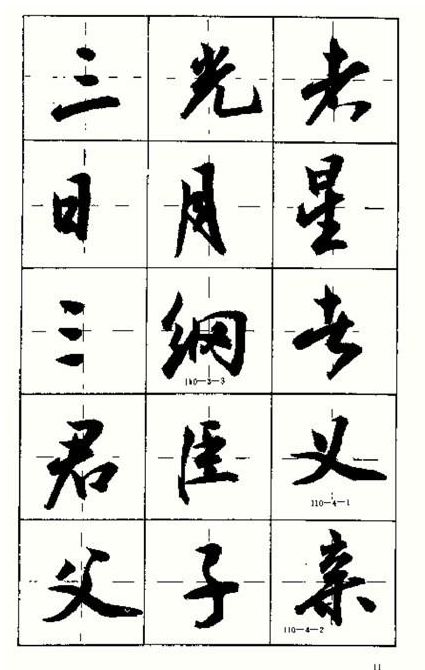 三光者
日月星
三纲者
110-3-3
君臣义
110-4-1
父子亲
110-4-2
11